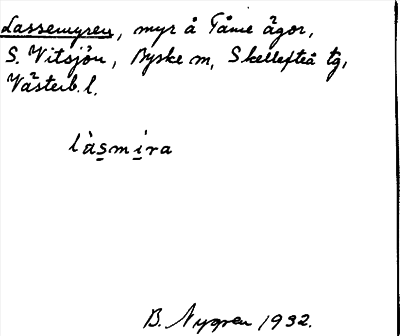 Lassemyren, myr å Tåme ägor,
S. Vitsjön, Byske sn, Skellefteå tg,
Västerb. l.
làsmira
B. Nygren 1932.